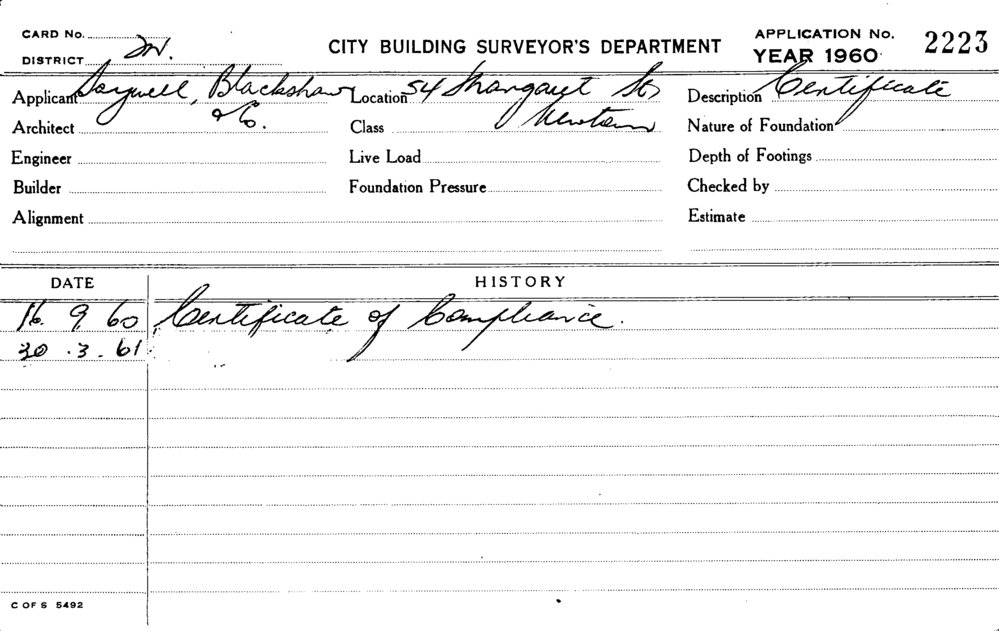 CARD No.
DISTRICT
CITY BUILDING SURVEYOR'S DEPARTMENT
APPLICATION No. 2223
YEAR 1960
Applicant Blackshaw & Co.
Location 54 Margaret St, Newtown
Description Certificate
Architect
Class
Nature of Foundation
Engineer
Live Load
Depth of Footings
Builder
Foundation Pressure
Checked by
Alignment
Estimate
DATE HISTORY
16. 9. 60 Certificate of Compliance.
30 . 3 . 61
C OF S 5492